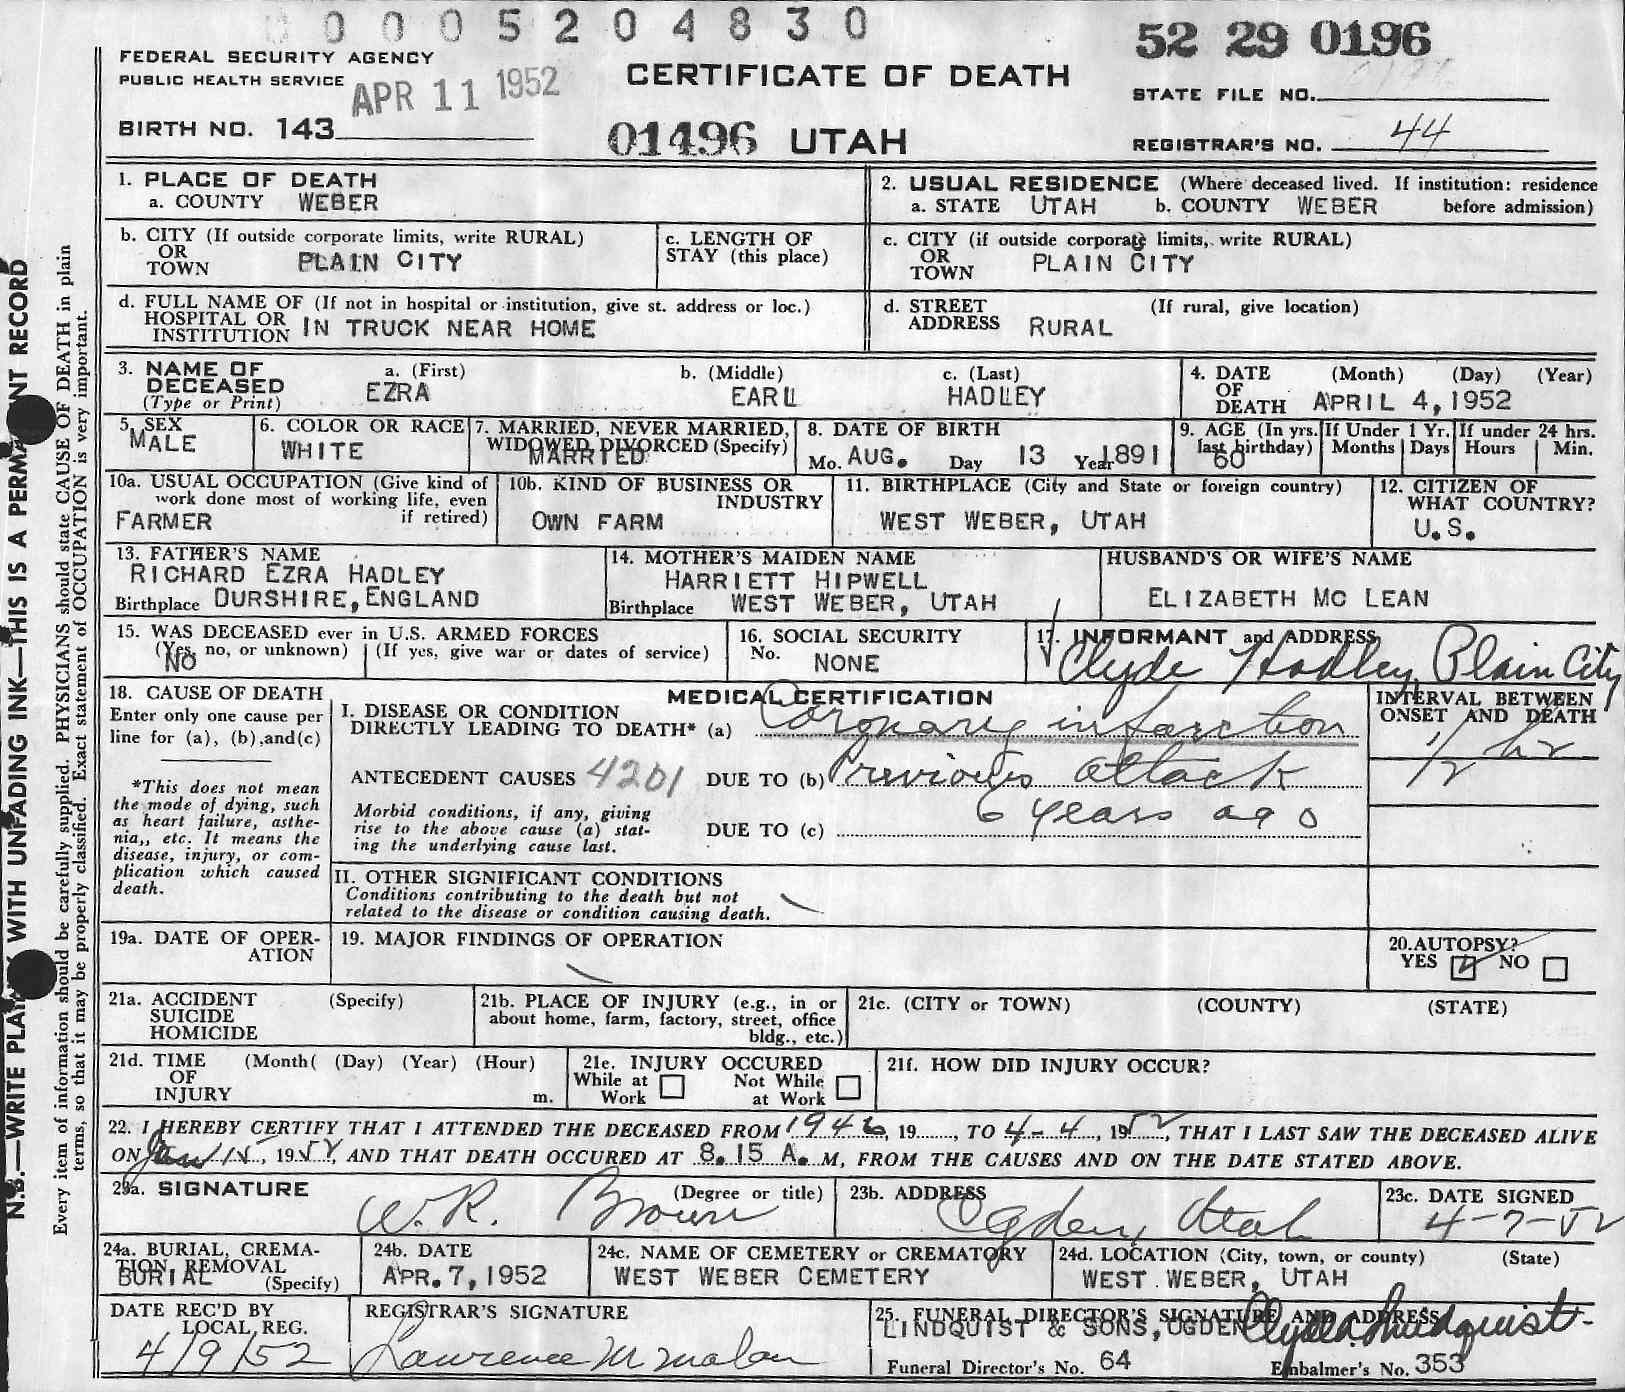 0 0 0 5 2 0 4 8 3 0
52 29 0196
FEDERAL SECURITY AGENCY
PUBLIC HEALTH SERVICE
APR 11 1952
CERTIFICATE OF DEATH
STATE FILE NO.
BIRTH NO. 143
01496 UTAH
REGISTRAR'S NO. 44
1. PLACE OF DEATH
a. COUNTY WEBER
2. USUAL RESIDENCE (Where deceased lived. If institution: residence
a. STATE UTAH b. COUNTY WEBER before admission)
b. CITY (If outside corporate limits, write RURAL)
OR
TOWN PLAIN CITY
c. LENGTH OF
STAY (this place)
c. CITY (if outside corporate limits, write RURAL)
OR
TOWN PLAIN CITY
d. FULL NAME OF (If not in hospital or institution, give st. address or loc.)
HOSPITAL OR
INSTITUTION IN TRUCK NEAR HOME
d. STREET (If rural, give location)
ADDRESS RURAL
3. NAME OF a. (First) b. (Middle) c. (Last)
DECEASED EZRA EARL HADLEY
(Type or Print)
4. DATE (Month) (Day) (Year)
OF
DEATH APRIL 4, 1952
5. SEX
MALE
6. COLOR OR RACE
WHITE
7. MARRIED, NEVER MARRIED,
WIDOWED DIVORCED (Specify)
MARRIED
8. DATE OF BIRTH
Mo. AUG. Day 13 Year 1891
9. AGE (In yrs. last birthday)
60
If Under 1 Yr.
Months Days
If under 24 hrs.
Hours Min.
10a. USUAL OCCUPATION (Give kind of
work done most of working life, even
if retired)
FARMER
10b. KIND OF BUSINESS OR
INDUSTRY
OWN FARM
11. BIRTHPLACE (City and State or foreign country)
WEST WEBER, UTAH
12. CITIZEN OF
WHAT COUNTRY?
U.S.
13. FATHER'S NAME
RICHARD EZRA HADLEY
Birthplace DURSHIRE, ENGLAND
14. MOTHER'S MAIDEN NAME
HARRIETT HIPWELL
Birthplace WEST WEBER, UTAH
HUSBAND'S OR WIFE'S NAME
ELIZABETH MC LEAN
15. WAS DECEASED ever in U.S. ARMED FORCES
(Yes, no, or unknown) (If yes, give war or dates of service)
NO
16. SOCIAL SECURITY
No. NONE
17. INFORMANT and ADDRESS
Clyde Hadley, Plain City
18. CAUSE OF DEATH
Enter only one cause per
line for (a), (b),and(c)
*This does not mean
the mode of dying, such
as heart failure, asthe-
nia,, etc. It means the
disease, injury, or com-
plication which caused
death.
MEDICAL CERTIFICATION
I. DISEASE OR CONDITION
DIRECTLY LEADING TO DEATH* (a) Coronary infarction
ANTECEDENT CAUSES 4201 DUE TO (b) Previous attack
6 years ago
Morbid conditions, if any, giving
rise to the above cause (a) stat-
ing the underlying cause last.
DUE TO (c)
INTERVAL BETWEEN
ONSET AND DEATH
1/2 hr
II. OTHER SIGNIFICANT CONDITIONS
Conditions contributing to the death but not
related to the disease or condition causing death.
19a. DATE OF OPER-
ATION
19. MAJOR FINDINGS OF OPERATION
20. AUTOPSY?
YES NO
21a. ACCIDENT (Specify)
SUICIDE
HOMICIDE
21b. PLACE OF INJURY (e.g., in or
about home, farm, factory, street, office
bldg., etc.)
21c. (CITY or TOWN) (COUNTY) (STATE)
21d. TIME (Month( (Day) (Year) (Hour)
OF
INJURY m.
21e. INJURY OCCURED
While at Work Not While at Work
21f. HOW DID INJURY OCCUR?
22. I HEREBY CERTIFY THAT I ATTENDED THE DECEASED FROM 1946, 19......, TO 4-4, 1952, THAT I LAST SAW THE DECEASED ALIVE
ON Jan 15, 1952, AND THAT DEATH OCCURED AT 8.15 A. M, FROM THE CAUSES AND ON THE DATE STATED ABOVE.
23a. SIGNATURE (Degree or title)
W. R. Brown
23b. ADDRESS
Ogden, Utah
23c. DATE SIGNED
4-7-52
24a. BURIAL, CREMA-
TION, REMOVAL
BURIAL (Specify)
24b. DATE
APR. 7, 1952
24c. NAME OF CEMETERY or CREMATORY
WEST WEBER CEMETERY
24d. LOCATION (City, town, or county) (State)
WEST WEBER, UTAH
DATE REC'D BY
LOCAL REG.
4/9/52
REGISTRAR'S SIGNATURE
Lawrence M Malan
25. FUNERAL DIRECTOR'S SIGNATURE AND ADDRESS
LINDQUIST & SONS, OGDEN Clyde Lindquist
Funeral Director's No. 64 Embalmer's No. 353
N.B.—WRITE PLAINLY WITH UNFADING INK—THIS IS A PERMANENT RECORD
Every item of information should be carefully supplied. PHYSICIANS should state CAUSE OF DEATH in plain
terms, so that it may be properly classified. Exact statement of OCCUPATION is very important.